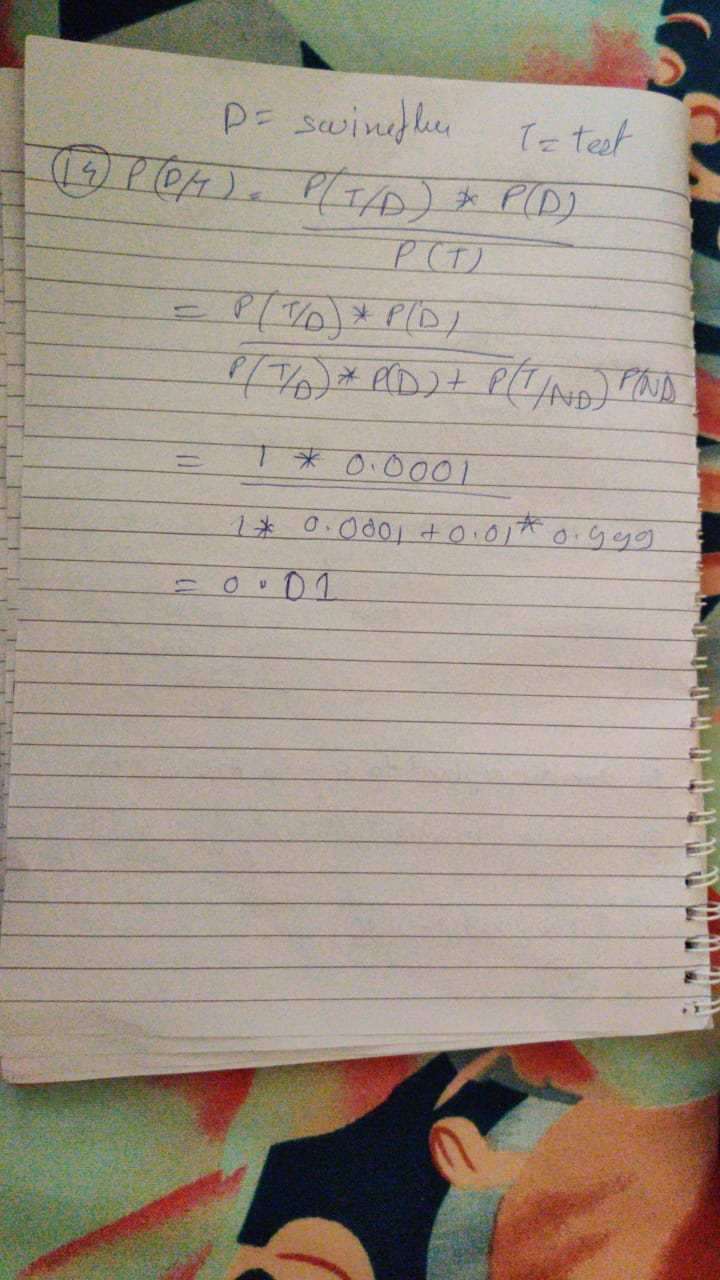 D = swineflu T = test
14 P(D/T) = P(T/D) * P(D)
P(T)
= P(T/D) * P(D)
P(T/D) * P(D) + P(T/ND) P(ND
= 1 * 0.0001
1 * 0.0001 + 0.01 * 0.999
= 0.01